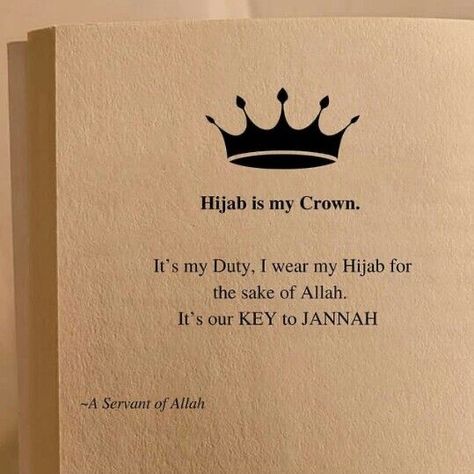 Hijab is my Crown.
It's my Duty, I wear my Hijab for
the sake of Allah.
It's our KEY to JANNAH
~A Servant of Allah